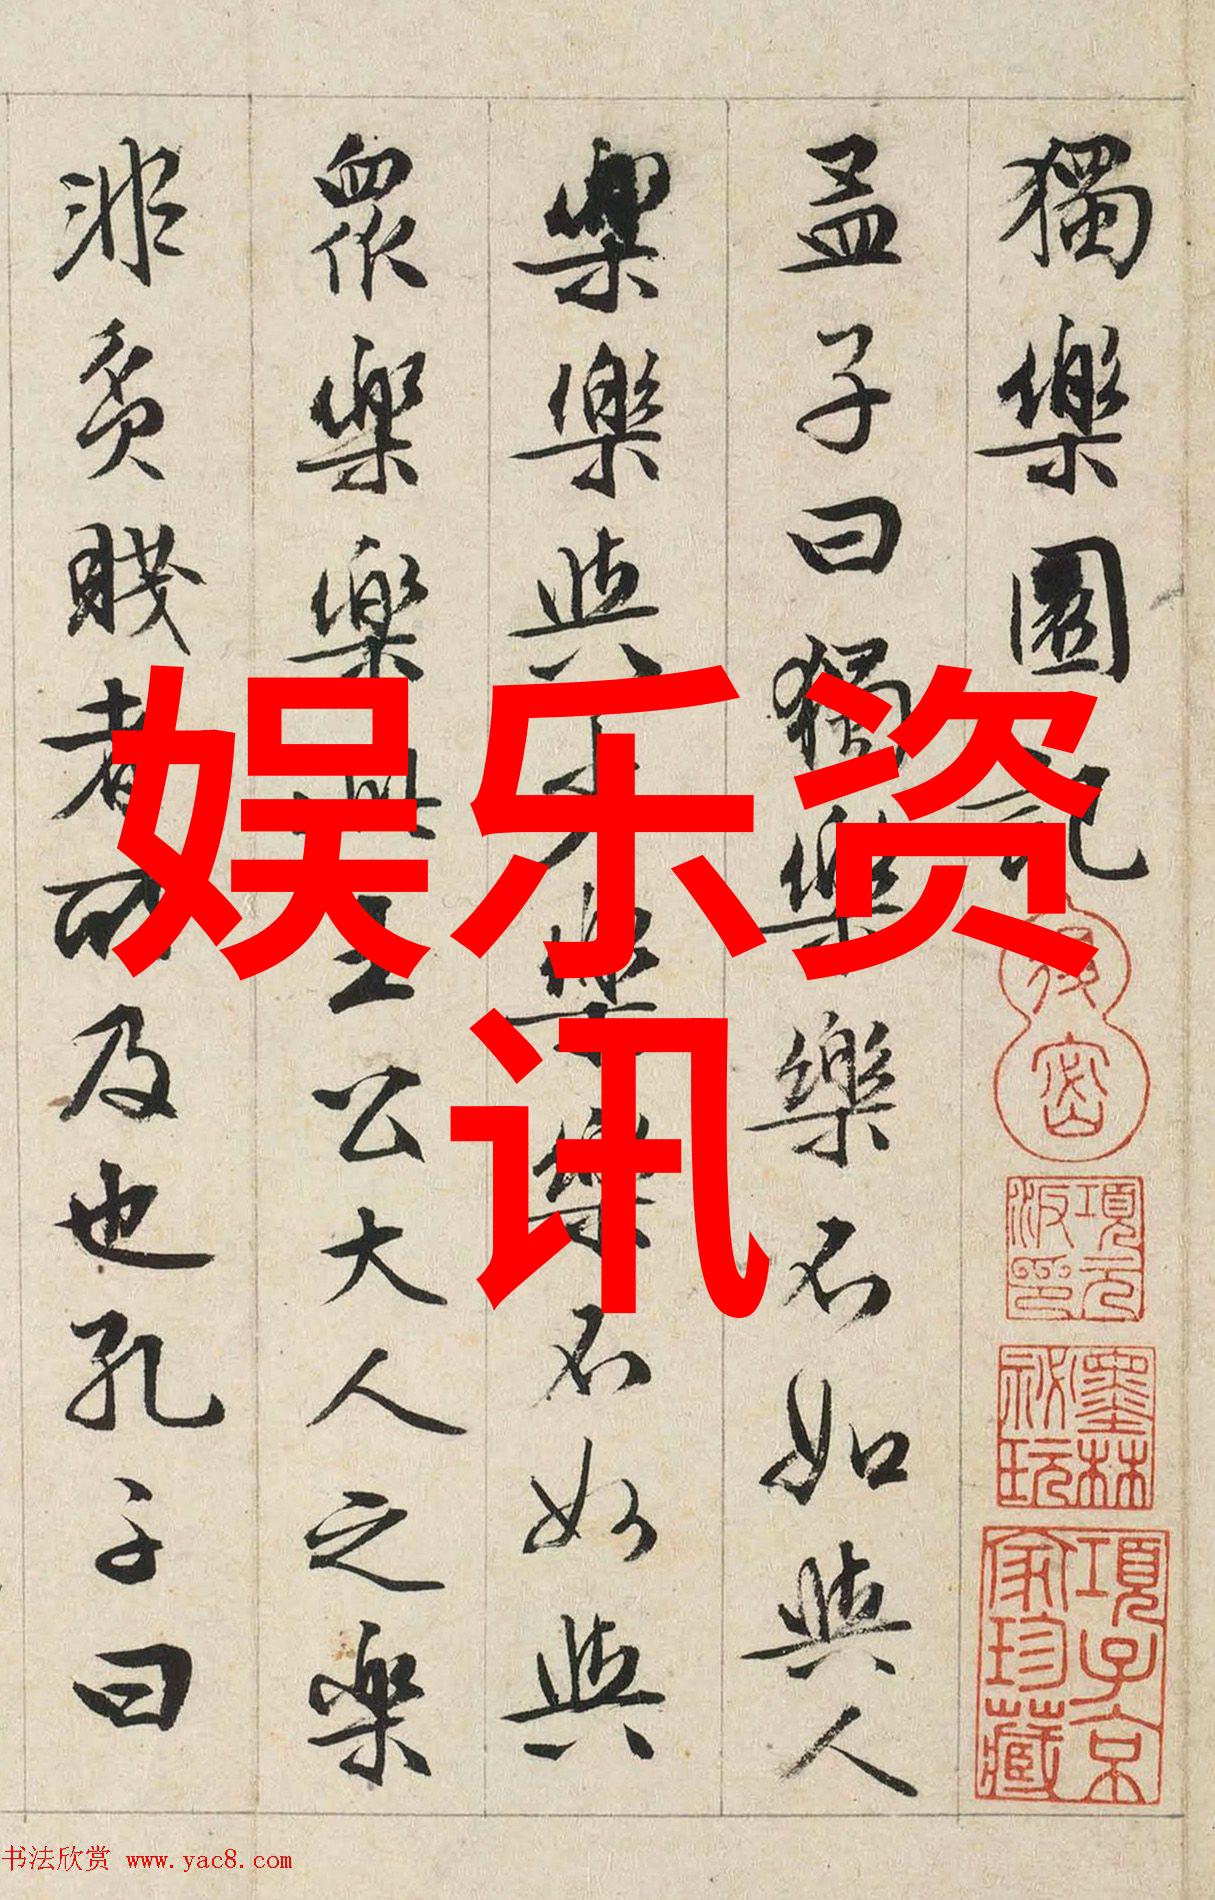 獨樂園記
孟子曰獨樂樂不如與人
樂樂與少樂樂不如與
眾樂樂此王公大人之樂
非貧賤者所及也孔子曰
娱乐资
讯
項元
汳印
墨林
祕玩
項子京
家珍藏
书法欣赏 www.yac8.com